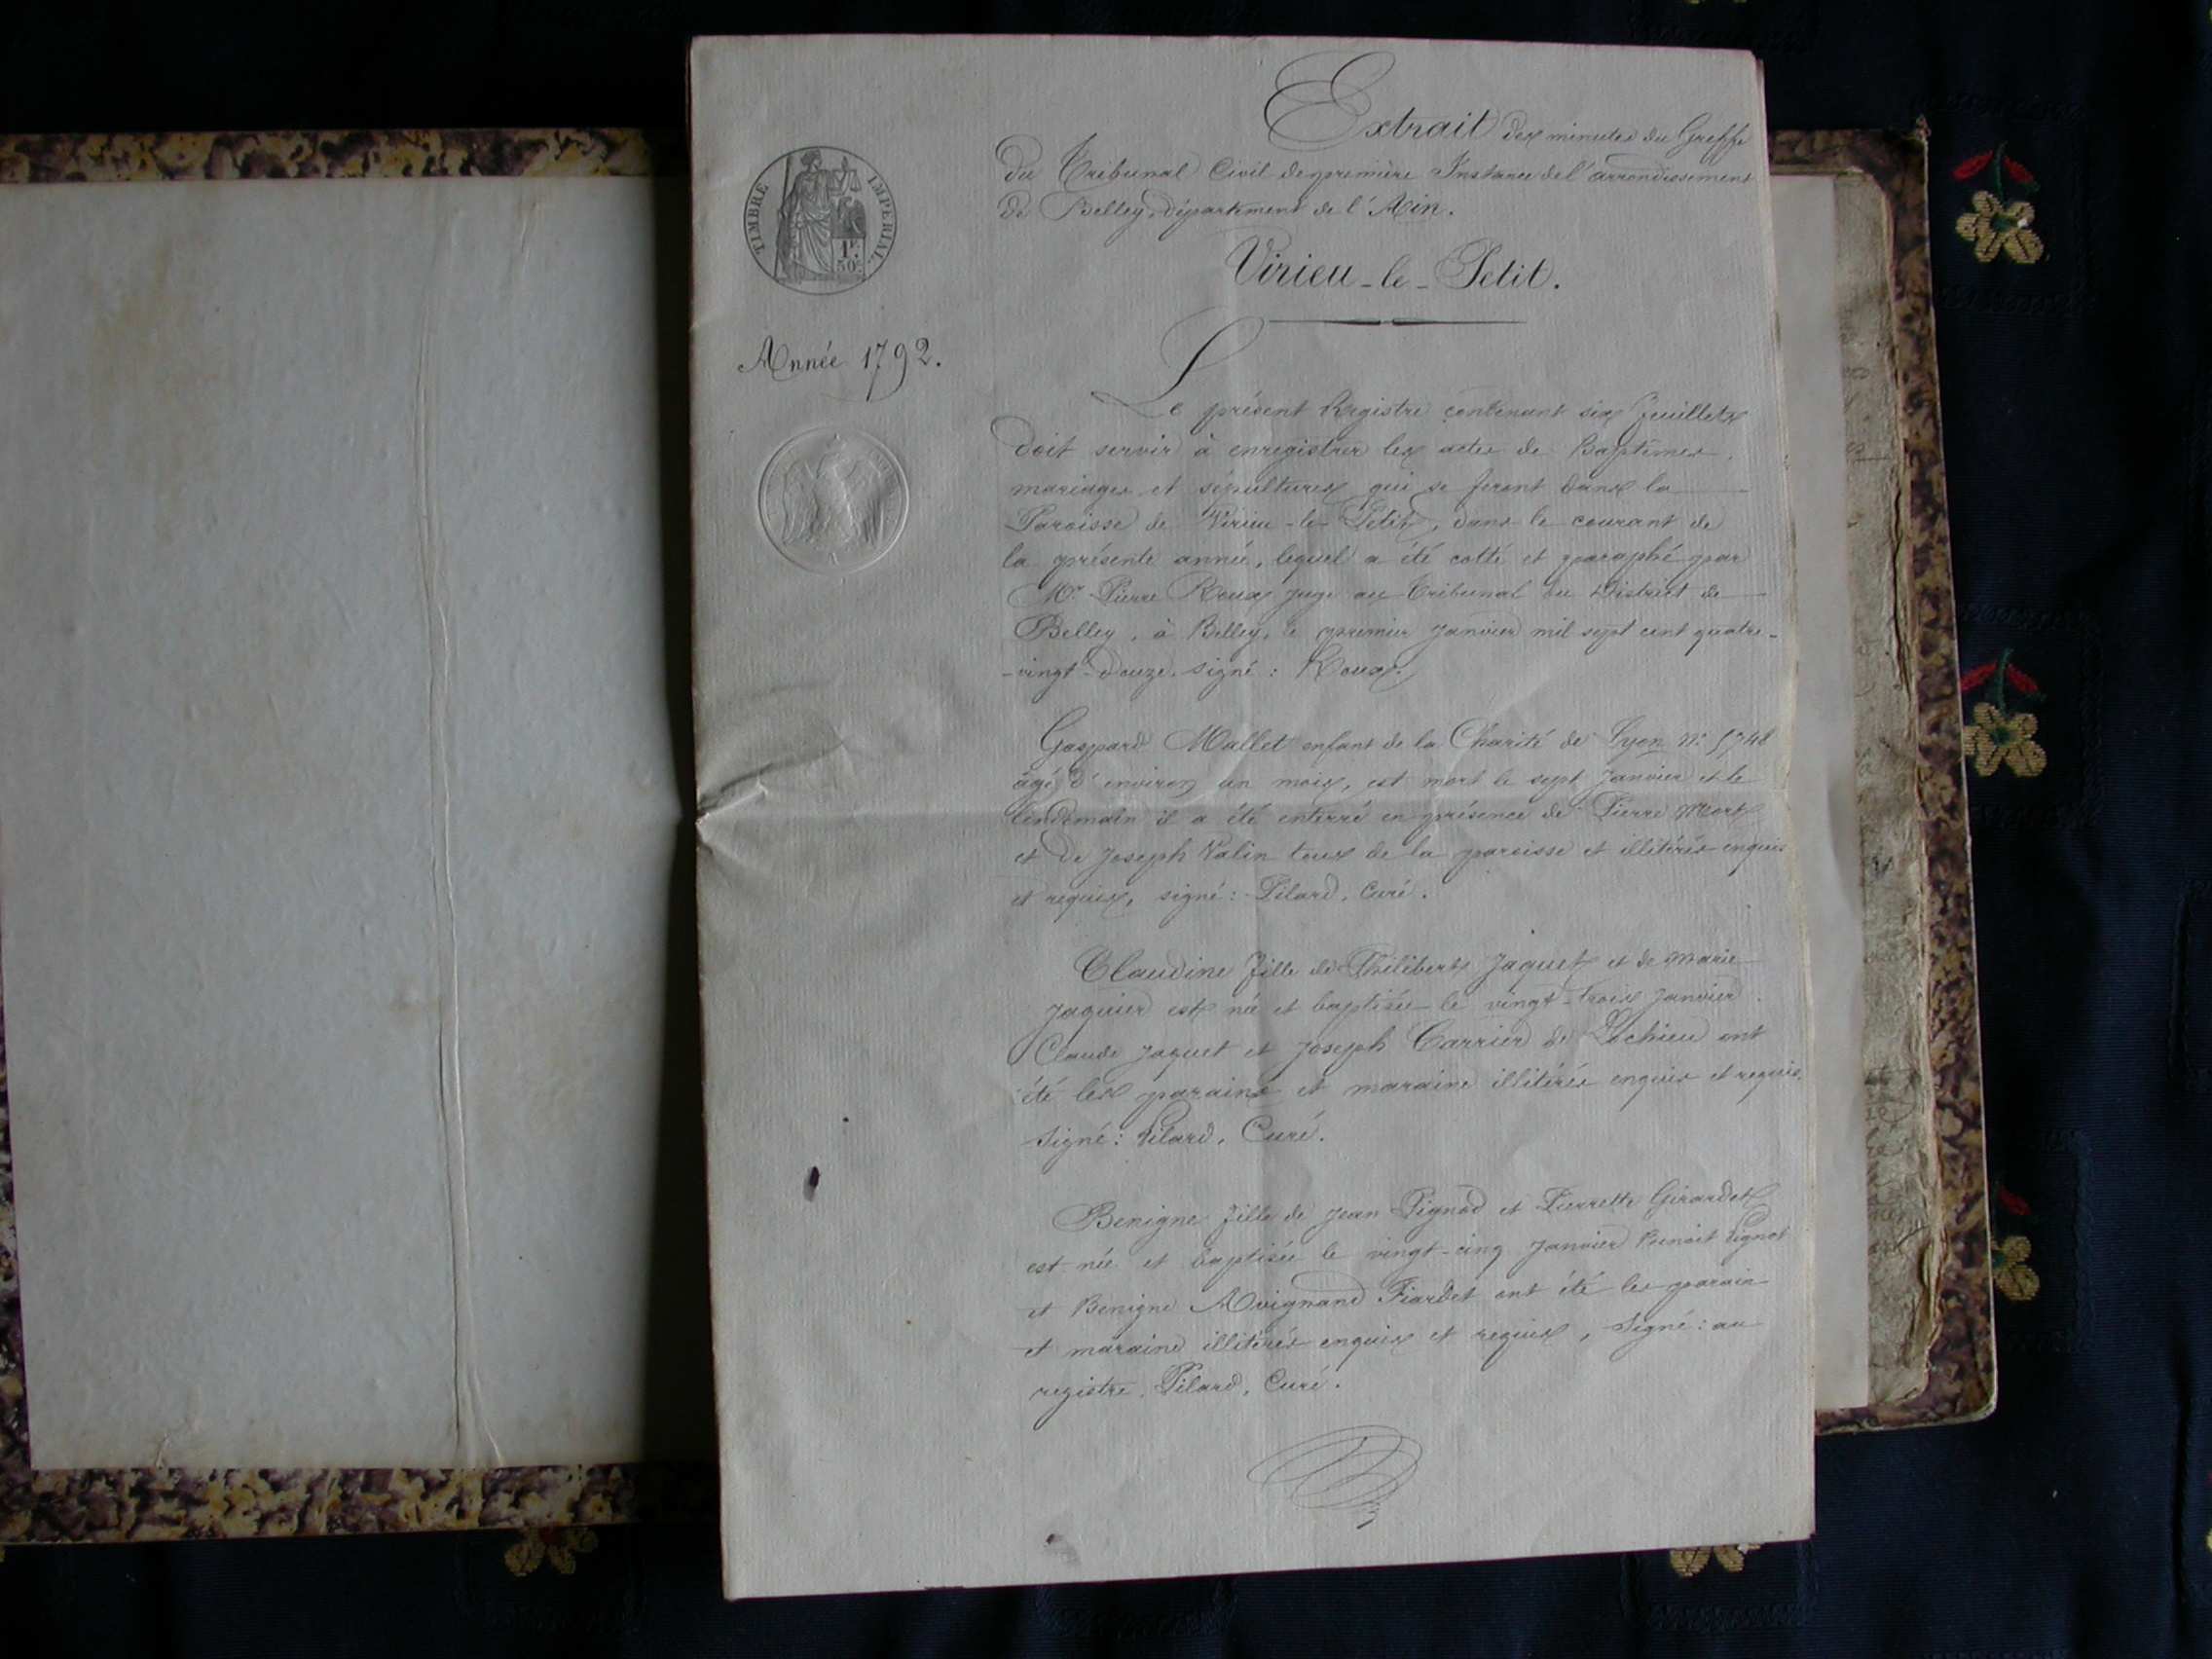 Extrait des minutes du Greffe
du Tribunal Civil de première Instance de l'arrondissement
de Belley, département de l'Ain.
TIMBRE IMPÉRIAL
1F.
50c
Virieu-le-Petit.
Année 1792.
Le présent Registre contenant six feuillets
doit servir à enregistrer les actes de Baptêmes,
mariages et sépultures qui se feront dans la
Paroisse de Virieu-le-Petit, dans le courant de
la présente année, lequel a été cotté et paraphé par
Mr. Pierre Roux juge au Tribunal du District de
Belley, à Belley, le premier Janvier mil sept cent quatre-
-vingt-douze. signé: Roux.
Gaspard Mallet enfant de la Charité de Lyon No. 5748
âgé d'environ un mois, est mort le sept Janvier et le
lendemain il a été enterré en présence de Pierre Mort
et de Joseph Valin tous de la paroisse et illitérés enquis
et requis, signé: Pilard, Curé.
Claudine fille de Philibert Jaquet et de Marie
Jaquier est née et baptisée le vingt-trois Janvier.
Claude Jaquet et Joseph Carrier de Lochieu ont
été les parains et maraine illitérés enquis et requis.
Signé: Pilard, Curé.
Benigne fille de Jean Pignod et Pierrette Girardet
est née et baptisée le vingt-cinq Janvier Benoit Pignot
et Benigne Avignand Fiardet ont été les parain
et maraine illitérés enquis et requis, Signé: au
registre, Pilard, Curé.